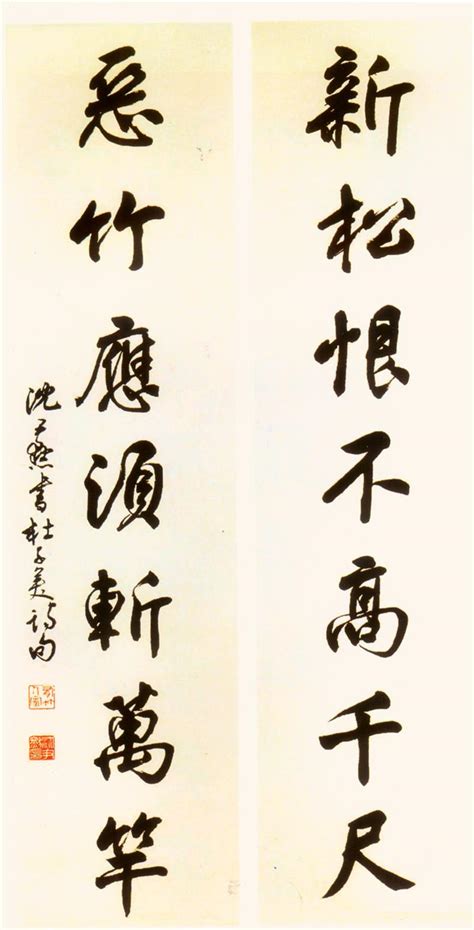 新松恨不高千尺
惡竹應須斬萬竿
沈尹默書杜子美詩句